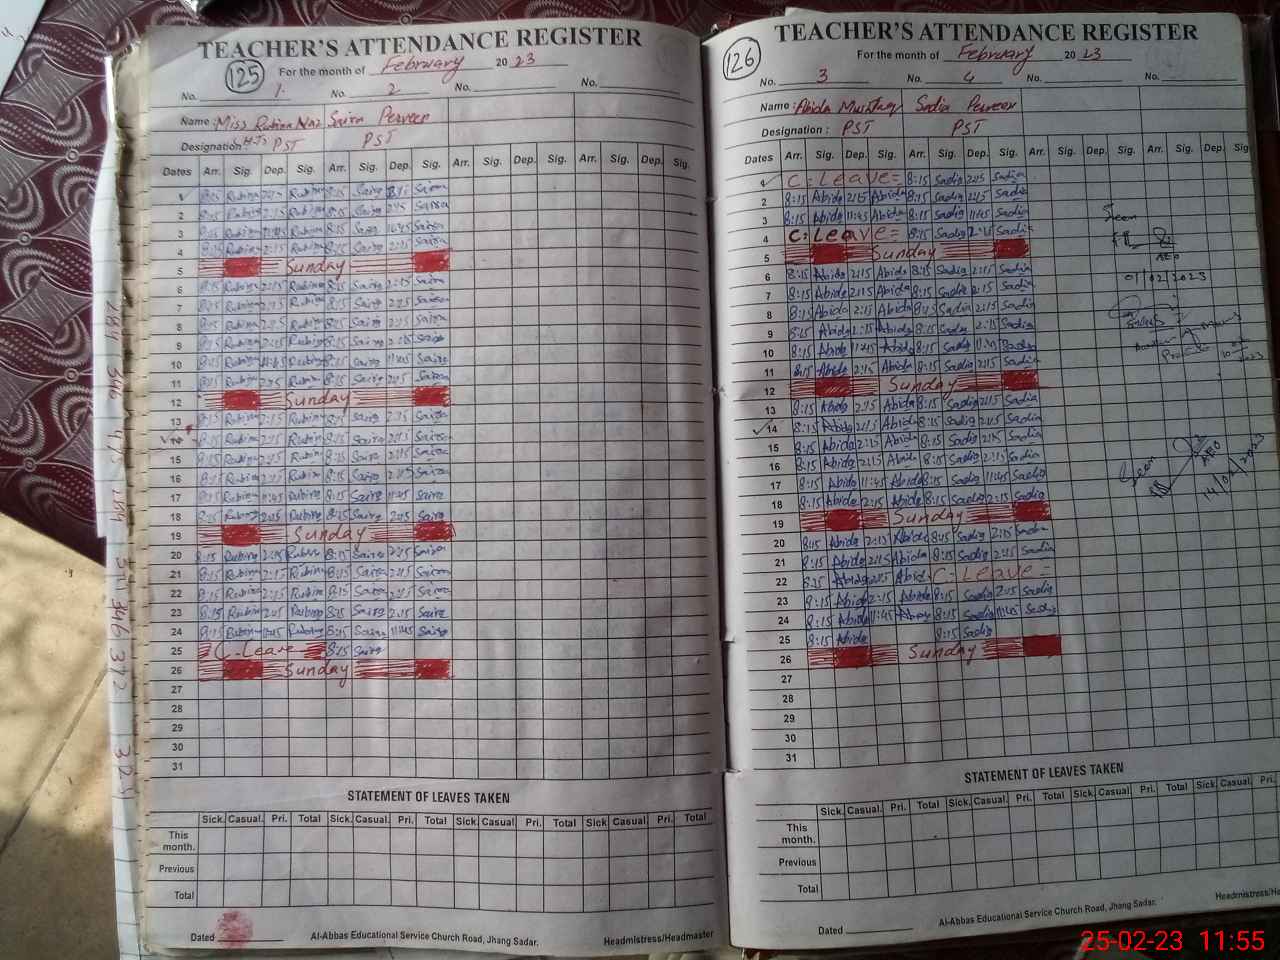 TEACHER'S ATTENDANCE REGISTER
125 For the month of February 2023
No. 1 No. 2 No. No.
Name : Miss Rubina Naz Saira Perveen
Designation : PST PST
Dates Arr. Sig. Dep. Sig. Arr. Sig. Dep. Sig. Arr. Sig. Dep. Sig. Arr. Sig. Dep. Sig.
1 Rubina Rubina 8:15 Saira Saira
2 Rubina 2:15 Rubina 8:15 Saira 2:15 Saira
3 Rubina 11:45 Rubina 8:15 Saira 11:45 Saira
4 Rubina 2:15 Rubina 8:15 Saira 2:15 Saira
5 Sunday
6 8:15 Rubina 2:15 Rubina 8:15 Saira 2:15 Saira
7 8:15 Rubina 2:15 Rubina 8:15 Saira 2:15 Saira
8 8:15 Rubina 2:15 Rubina 8:15 Saira 2:15 Saira
9 8:15 Rubina 2:15 Rubina 8:15 Saira 2:15 Saira
10 8:15 Rubina 11:45 Rubina 8:15 Saira 11:45 Saira
11 8:15 Rubina 2:15 Rubina 8:15 Saira 2:15 Saira
12 Sunday
13 8:15 Rubina 2:15 Rubina 8:15 Saira 2:15 Saira
14 8:15 Rubina 2:15 Rubina 8:15 Saira 2:15 Saira
15 8:15 Rubina 2:15 Rubina 8:15 Saira 2:15 Saira
16 8:15 Rubina 2:15 Rubina 8:15 Saira 2:15 Saira
17 8:15 Rubina 11:45 Rubina 8:15 Saira 11:45 Saira
18 8:15 Rubina 2:15 Rubina 8:15 Saira 2:15 Saira
19 Sunday
20 8:15 Rubina 2:15 Rubina 8:15 Saira 2:15 Saira
21 8:15 Rubina 2:15 Rubina 8:15 Saira 2:15 Saira
22 8:15 Rubina 2:15 Rubina 8:15 Saira 2:15 Saira
23 8:15 Rubina 2:15 Rubina 8:15 Saira 2:15 Saira
24 8:15 Rubina 11:45 Rubina 8:15 Saira 11:45 Saira
25 C-Leave 8:15 Saira
26 Sunday
27
28
29
30
31
STATEMENT OF LEAVES TAKEN
Sick. Casual. Pri. Total Sick. Casual. Pri. Total Sick. Casual. Pri. Total Sick. Casual. Pri. Total
This month.
Previous
Total
Dated
Al-Abbas Educational Service Church Road, Jhang Sadar. Headmistress/Headmaster
TEACHER'S ATTENDANCE REGISTER
126 For the month of February 2023
No. 3 No. 4 No. No.
Name : Abida Mushtaq Sadia Perveen
Designation : PST PST
Dates Arr. Sig. Dep. Sig. Arr. Sig. Dep. Sig. Arr. Sig. Dep. Sig. Arr. Sig. Dep. Sig
1 C-Leave= 8:15 Sadia 2:15 Sadia
2 8:15 Abida 2:15 Abida 8:15 Sadia 2:15 Sadia
3 8:15 Abida 11:45 Abida 8:15 Sadia 11:45 Sadia
4 C-Leave= 8:15 Sadia 2:15 Sadia
5 Sunday
6 8:15 Abida 2:15 Abida 8:15 Sadia 2:15 Sadia
7 8:15 Abida 2:15 Abida 8:15 Sadia 2:15 Sadia
8 8:15 Abida 2:15 Abida 8:15 Sadia 2:15 Sadia
9 8:15 Abida 2:15 Abida 8:15 Sadia 2:15 Sadia
10 8:15 Abida 11:45 Abida 8:15 Sadia 11:45 Sadia
11 8:15 Abida 2:15 Abida 8:15 Sadia 2:15 Sadia
12 Sunday
13 8:15 Abida 2:15 Abida 8:15 Sadia 2:15 Sadia
14 8:15 Abida 2:15 Abida 8:15 Sadia 2:15 Sadia
15 8:15 Abida 2:15 Abida 8:15 Sadia 2:15 Sadia
16 8:15 Abida 2:15 Abida 8:15 Sadia 2:15 Sadia
17 8:15 Abida 11:45 Abida 8:15 Sadia 11:45 Sadia
18 8:15 Abida 2:15 Abida 8:15 Sadia 2:15 Sadia
19 Sunday
20 8:15 Abida 2:15 Abida 8:15 Sadia 2:15 Sadia
21 8:15 Abida 2:15 Abida 8:15 Sadia 2:15 Sadia
22 Abida 2:15 Abida C-Leave=
23 8:15 Abida 2:15 Abida 8:15 Sadia 2:15 Sadia
24 8:15 Abida 11:45 Abida 8:15 Sadia 11:45 Sadia
25 8:15 Abida 8:15 Sadia
26 Sunday
27
28
29
30
31
Seen
AEO
01/02/2023
Seen
AEO
14/02/2023
STATEMENT OF LEAVES TAKEN
Sick. Casual. Pri. Total Sick. Casual. Pri. Total Sick. Casual. Pri. Total Sick. Casual. Pri.
This month.
Previous
Total
Dated
Al-Abbas Educational Service Church Road, Jhang Sadar. Headmistress/He
25-02-23 11:55